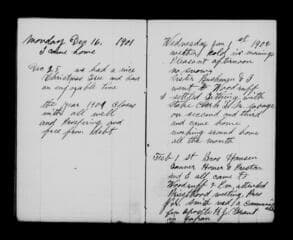 Monday Dec 16. 1901
I came home
Dec 25 we had a nice
Christmas Tree and had
an enjoyable time
the year 1901 closes
with all well
and prospering and
free from debt
Wednesday Jan 1st 1902
weather cold in mornings
Pleasant afternoon
no snow
Sister Bushman & I
went to Woodruff
I settled
on second and third
and came home
working around home
all the month
Feb 1st Bros Hansen
Conner Homer & Preston
and I all came to
Woodruff & Evn attended
Priesthood meeting, Pres
J. H. Smith read a communication
from Apostle H. J. Grant
in Japan